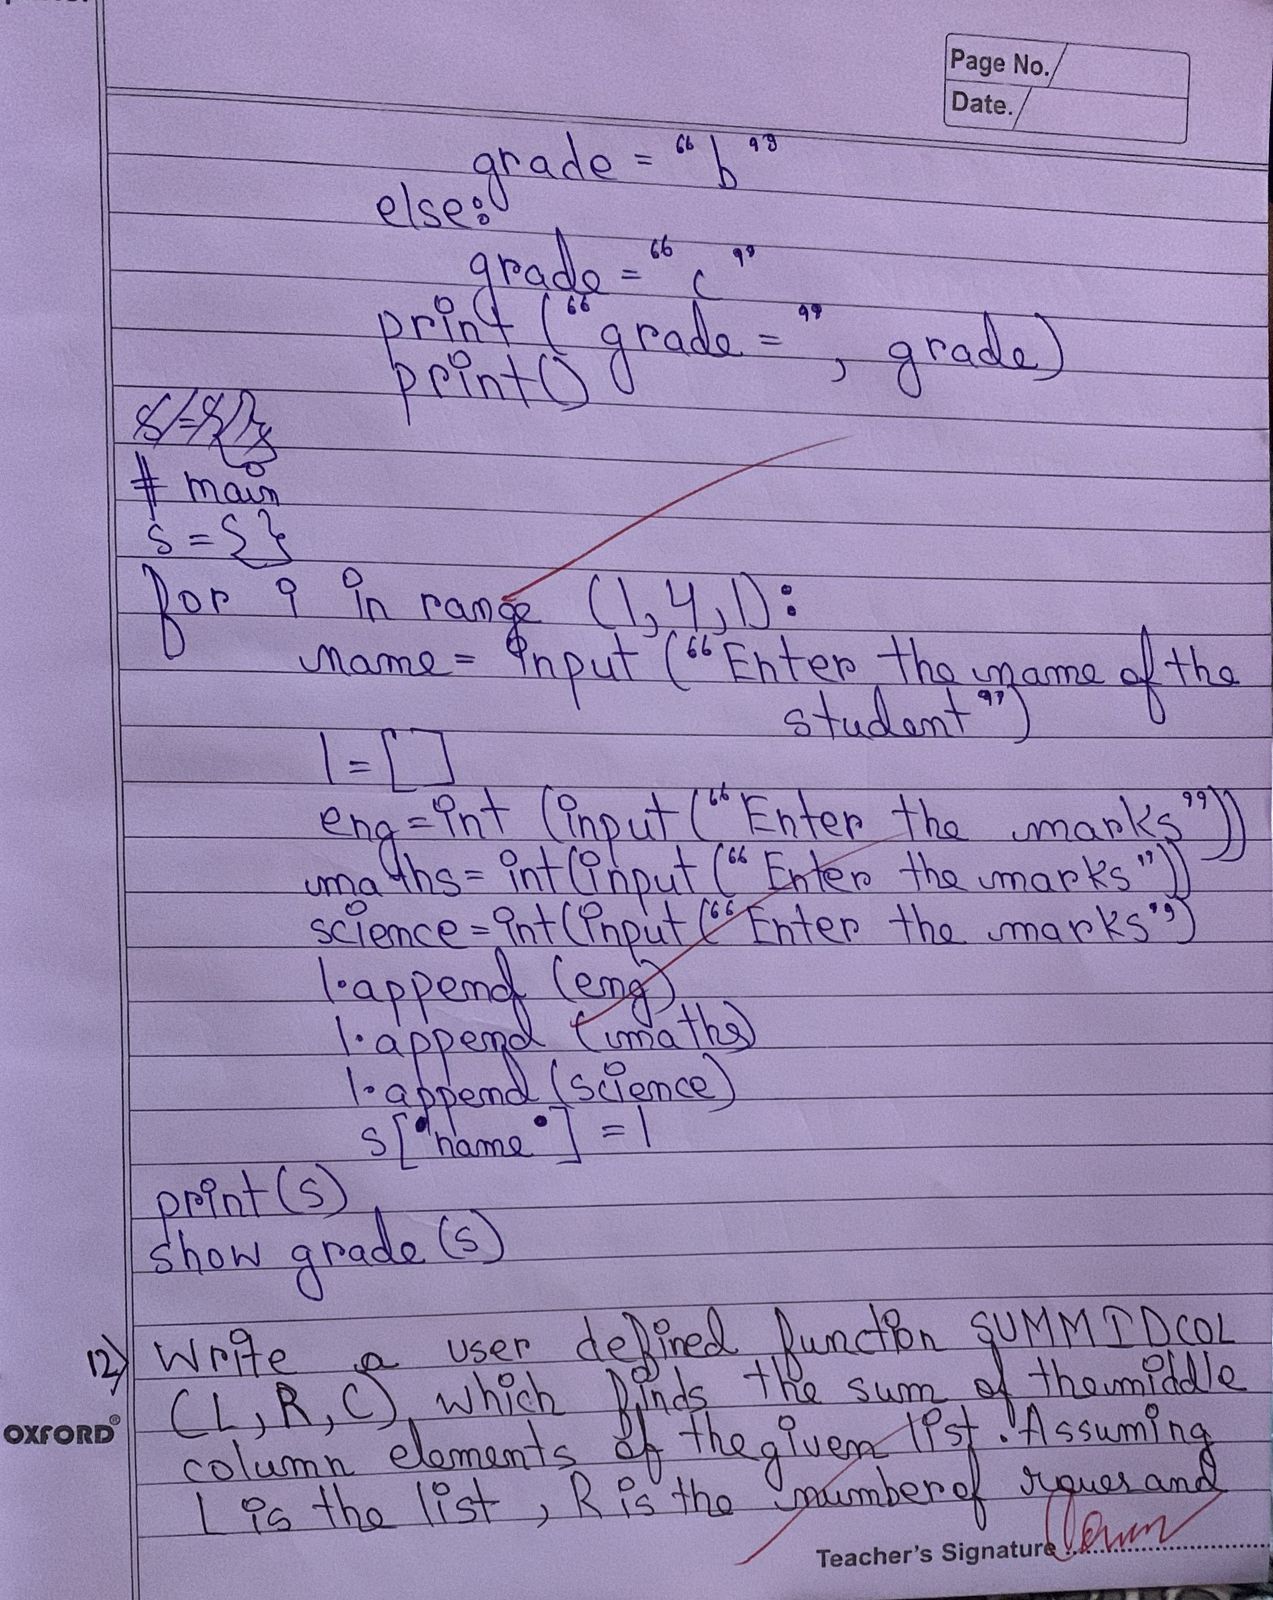 Page No.
Date.
grade = "b"
else:
grade = "c"
print ("grade = ", grade)
print()
# main
s = {}
for i in range (1,4,1):
name = input ("Enter the name of the
student")
l = []
eng = int (input ("Enter the marks"))
maths = int(input ("Enter the marks"))
science = int(input ("Enter the marks")
l.append (eng)
l.append (maths)
l.append (science)
s["name"] = l
print(s)
show grade (s)
12) Write a user defined function SUMMIDCOL
(L, R, C), which finds the sum of the middle
OXFORD®
column elements of the given list. Assuming
L is the list, R is the number of and
Teacher's Signature